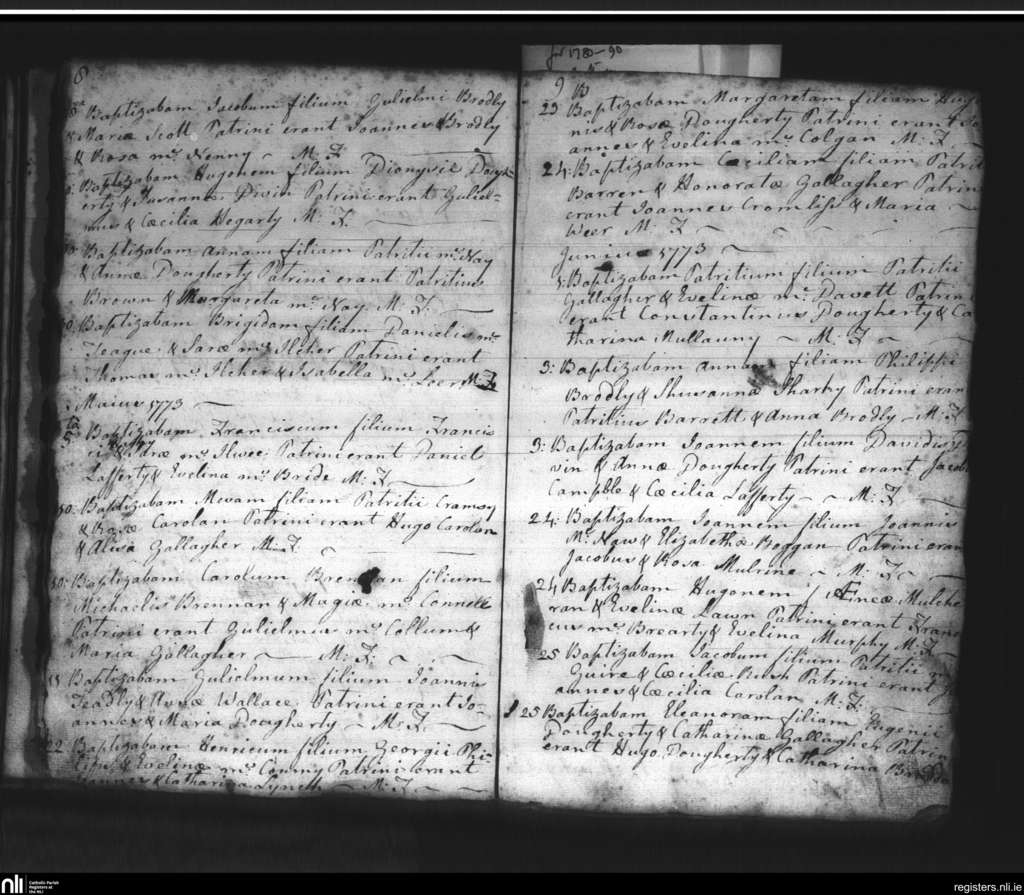 for 1780-90
8
Baptizabam Jacobum filium Gulielmi Brodly
& Mariæ Scott Patrini erant Joannes Brodly
& Rosa Mc Nenny ~ M: F
Baptizabam Hugonem filium Dionysii Dough-
erty & Susannæ Divin Patrini erant Guliel-
mus & Cæcilia Hegarty M: F.
Baptizabam Annam filiam Patritii Mc Nay
& Annæ Dougherty Patrini erant Patritius
Brown & Margareta Mc Nay M: F.
Baptizabam Brigidam filiam Danielis Mc
Teague & Saræ Mc Ilcher Patrini erant
Thomas Mc Ilcher & Isabella Mc Leer M: F
Maius 1773
5 Baptizabam Franciscum filium Francis
ci & Saræ Mc Ilwee: Patrini erant Daniel
Lafferty & Evelina Mc Bride M: F
10: Baptizabam filiam Patritii Cramsy
& Rosæ Carolan Patrini erant Hugo Carolan
& Alisa Gallagher M: F.
10: Baptizabam Carolum Brennan filium
Michaelis Brennan & Magiæ Mc Connell
Patrini erant Gulielmus Mc Collum &
Maria Gallagher M: F.
Baptizabam Gulielmum filium Joannis
& Wallace Patrini erant Jo-
annes & Maria Dougherty M: F.
22 Baptizabam Henricum filium Georgii Phi-
& Evelinæ Mc Patrini erant
& Catharina Lynch M: F.
9 B
23 Baptizabam Margaretam filiam Hug
& Rosæ Dougherty Patrini erant Jo
annes & Evelina Mc Colgan M: F.
24: Baptizabam Cæciliam filiam Patrit
Barren & Honoratæ Gallagher Patrin
erant Joannes Cromliss & Maria
Weer M: F
Junius 1773
Baptizabam Patritium filium Patritii
Gallagher & Evelinæ Mc Davett Patrin
erant Constantinus Dougherty & Ca
tharina Mullauny ~ M: F
3: Baptizabam Annam filiam Philippi
Brodly & Shusannæ Sharky Patrini eran
Patritius Barrett & Anna Brodly M: F
3: Baptizabam Joannem filium Davidis
vin & Annæ Dougherty Patrini erant Jacob
Campble & Cæcilia Lafferty M: F
24: Baptizabam Joannem filium Joannis
Mc Naw & Elizabethæ Boggan Patrini eran
Jacobus & Rosa Mulrine M: F
24 Baptizabam Hugonem f Æneæ Mulche
ran & Evelinæ Lawn Patrini erant Fran
cus Mc Brearty & Evelina Murphy M: F
25 Baptizabam Jacobum filium Patritii
Guire & Cæciliæ Rush Patrini erant
annes & Cæcilia Carolan M: F
25 Baptizabam Eleanoram filiam Eugenii
Dougherty & Catharinæ Gallagher Patrin
erant Hugo Dougherty & Catharina
nli
Catholic Parish
Registers at
the NLI
registers.nli.ie